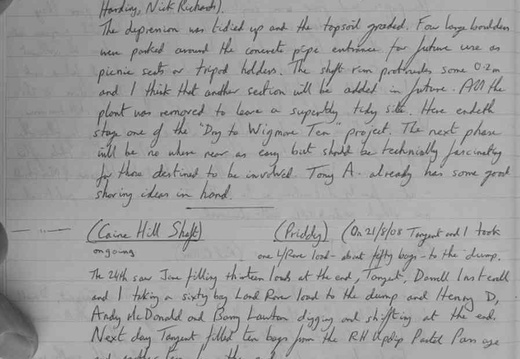 Harding, Nick Richards).
The depression was tidied up and the topsoil graded. Four large boulders
were parked around the concrete pipe entrance for future use as
picnic seats or tripod holders. The shaft rim protrudes some 0.2m
and I think that another section will be added in future. All the
plant was removed to leave a superbly tidy site. Here endeth
stage one of the "Dry to Wigmore Ten" project. The next phase
will be no where near as easy but should be technically fascinating
for those destined to be involved. Tony A. already has some good
shoring ideas in hand.
(Caine Hill Shaft) (Priddy) (On 21/8/08 Tangent and I took
ongoing one L/Rover load - about fifty bags - to the dump.
The 24th saw Jane filling thirteen loads at the end, Tangent,
and I taking a sixty bag Land Rover load to the dump and Henry D,
Andy McDonald and Barry Lawton digging and shifting at the end.
Next day Tangent filled ten bags from the RH Updip Parted Passage